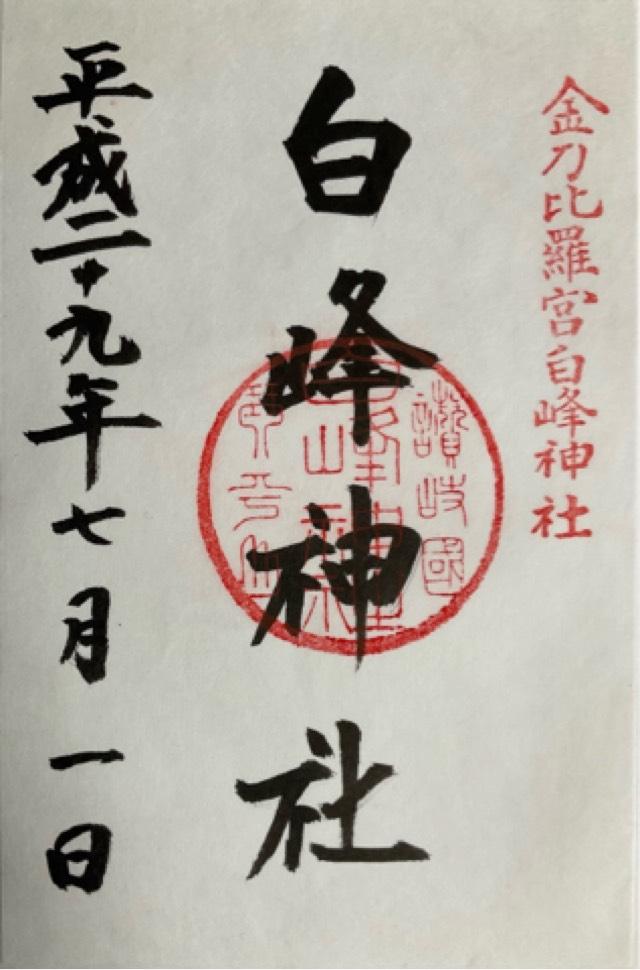 金刀比羅宮白峰神社
白峰神社
讃岐國
平成二十九年七月一日